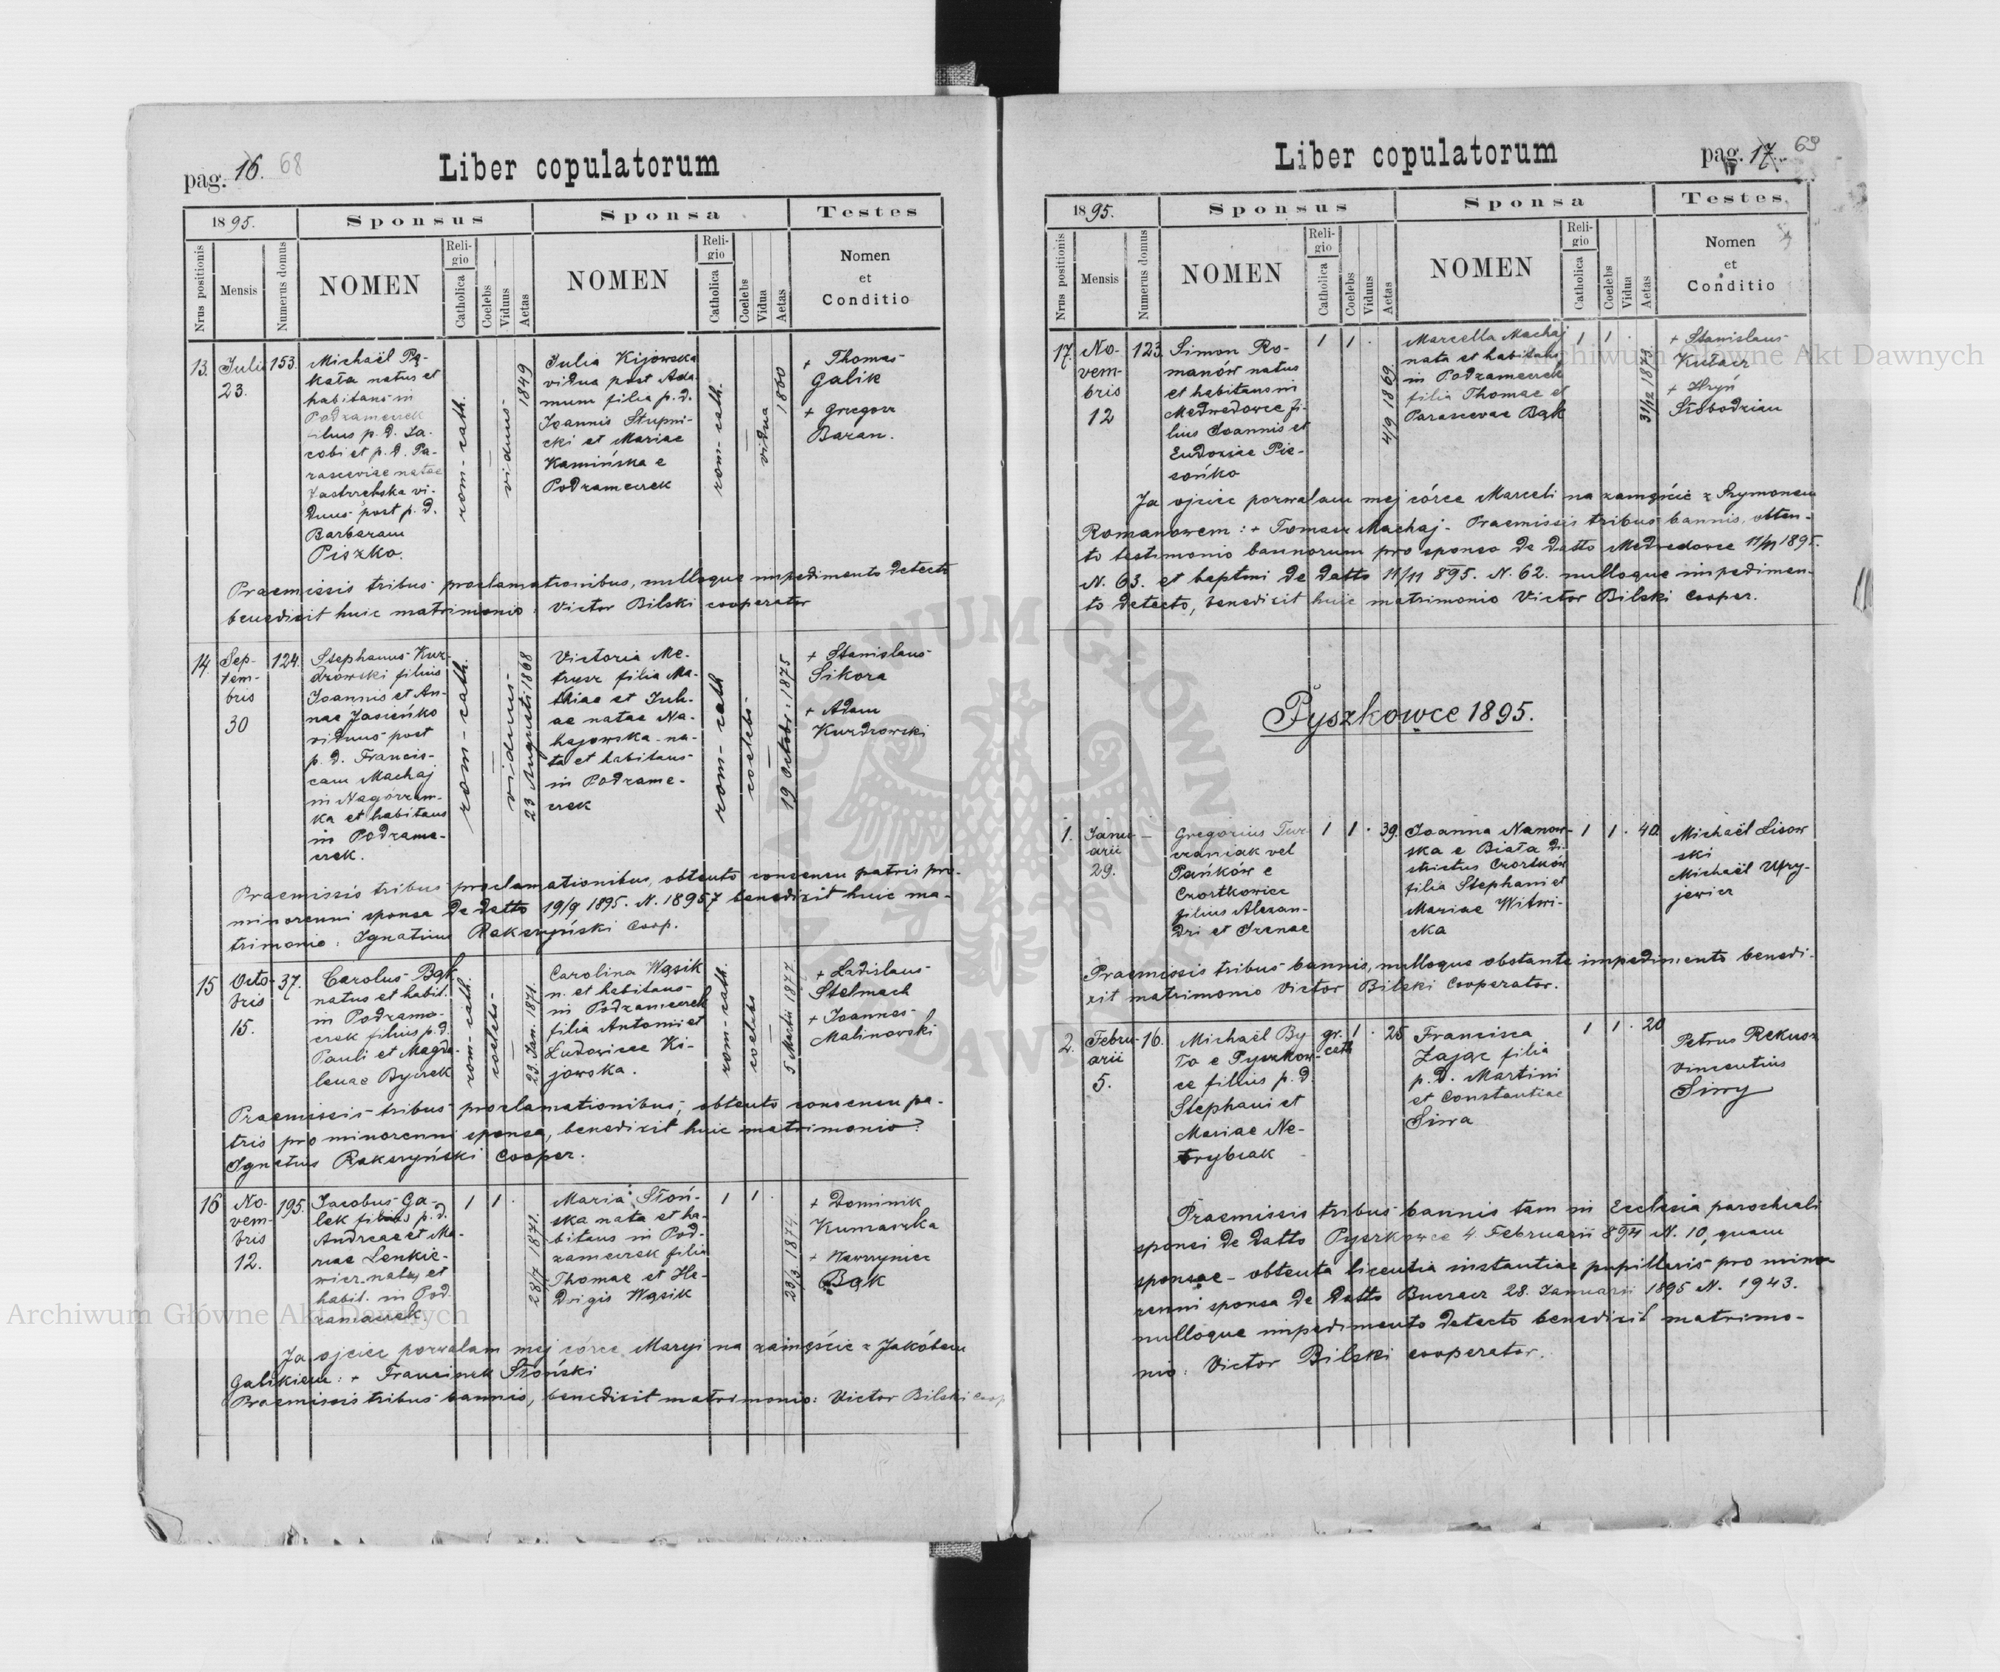 pag. 16. 68
Liber copulatorum
1895. Sponsus Sponsa Testes
Nrus positionis
Mensis
Numerus domus
NOMEN
Religio
Catholica
Coelebs
Viduus
Aetas
NOMEN
Religio
Catholica
Coelebs
Vidua
Aetas
Nomen
et
Conditio
13. Julii
23.
153.
Michaël Pą-
kała natus et
habitans in
Podzameczek
filius p. d. Ja-
cobi et p. d. Pa-
rasceviae natae
Jastrzebska vi-
duus post p. d.
Barbaram
Piszko.
rom-cath.
viduus
1849
Julia Kijowska
vidua post Ada-
mum filia p. d.
Joannis Stupni-
cki et Mariae
Kamińska e
Podzameczek
rom-cath.
vidua
1860
+ Thomas
Galik
+ Gregorz
Baran.
Praemissis tribus proclamationibus, nulloque impedimento detecto
benedixit huic matrimonio: Victor Bilski cooperator
14. Sep-
tem-
bris
30
124.
Stephanus Kur-
drowski filius
Joannis et An-
nae Jasieńko
viduus post
p. d. Francis-
cam Machaj
in Nagórzan-
ka et habitans
in Podzame-
czek.
rom-cath.
viduus
23 Augusti 1868
Victoria Me-
trysz filia Ma-
thiae et Juli-
ae natae Na-
hajowska na-
ta et habitans
in Podzame-
czek
rom-cath
coelebs
19 Octobr: 1875
+ Stanislaus
Sikora
+ Adam
Kurdrowski
Praemissis tribus proclamationibus, obtento consensu patris pro
minorenni sponsa de datto 19/9 1895. N. 18957 benedixit huic ma-
trimonio: Ignatius Rakszyński Coop.
15 Octo-
bris
15.
37.
Carolus Bąk
natus et habit.
in Podzame-
czek filius p. d.
Pauli et Magda-
lenae Byczek
rom-cath.
coelebs
23 Jan. 1871.
Carolina Wąsik
n. et habitans
in Podzameczek
filia Antonii et
Ludovicae Ki-
jowska.
rom-cath.
coelebs
5 Martii 1877
+ Ladislaus
Stelmach
+ Joannes
Malinowski
Praemissis tribus proclamationibus, obtento consensu pa-
tris pro minorenni sponsa, benedixit huic matrimonio:
Ignatius Rakszyński Cooper.
16 No-
vem-
bris
12.
195.
Jacobus Ga-
lek filius p. d.
Andreae et Ma-
riae Lenkie-
wicz natus et
habit. in Pod-
zameczek.
1 1 .
28/7 1871.
Maria Słoń-
ska nata et ha-
bitans in Pod-
zameczek filia
Thomae et He-
dvigis Wąsik
1 1 .
23/3 1874.
+ Dominik
Kumaszka
+ Wawrzyniec
Bąk
Ja ojciec pozwalam mej córce Maryi na zamęście z Jakóbem
Galikiem: + Franciszek Słoński
Praemissis tribus bannis, benedixit matrimonio: Victor Bilski Coop
Liber copulatorum
pag. 17. 69
1895. Sponsus Sponsa Testes
Nrus positionis
Mensis
Numerus domus
NOMEN
Religio
Catholica
Coelebs
Viduus
Aetas
NOMEN
Religio
Catholica
Coelebs
Vidua
Aetas
Nomen
et
Conditio
17. No-
vem-
bris
12
123.
Simon Ro-
manów natus
et habitans in
Medwedowce fi-
lius Joannis et
Eudoxiae Pie-
cońko
1 1 .
4/9 1869.
Marcella Machaj
nata et habitans
in Podzameczek
filia Thomae et
Parascevae Bąk
1 1 .
31/12 1873
+ Stanislaus
Kułacz
+ Hryń
Słobodzian
Ja ojciec pozwalam mej córce Marceli na zamęście z Szymonem
Romanowem: + Tomasz Machaj. Praemissis tribus bannis, obten-
to testimonio bannorum pro sponso de datto Medvedowce 11/11 1895.
N. 63. et baptmi de datto 11/11 895. N. 62. nulloque impedimen-
to detecto, benedixit huic matrimonio Victor Bilski Cooper.
Pyszkowce 1895.
1. Janu-
arii
29.
—
Gregorius Tur-
czaniak vel
Pańków e
Czortkowice
filius Alexan-
dri et Irenae
1 1 . 39.
Joanna Nanow-
ska e Biała di-
strictus Czortków
filia Stephani et
Mariae Witwi-
cka
1 1 . 40.
Michaël Lisow
ski
Michaël Ufry-
jewicz
Praemissis tribus bannis, nulloque obstante impedimento benedi-
xit matrimonio Victor Bilski Cooperator.
2. Febru-
arii
5.
16.
Michaël By
ta e Pyszkow-
ce filius p. d.
Stephani et
Mariae Ne-
trybiak
gr.
cath
1 . 25
Francisca
Zając filia
p. d. Martini
et Constantiae
Siwa
1 1 . 20
Petrus Rekusz
Vincentius
Siwy
Praemissis tribus bannis tam in Ecclesia parochiali
sponsi de datto Pyszkowce 4 Februarii 894 N. 10, quam
sponsae - obtenta licentia instantiae pupillaris pro mino-
renni sponsa de datto Buczacz 28. Januarii 1895 N. 1943.
nulloque impedimento detecto benedixit matrimo-
nio: Victor Bilski cooperator.
Archiwum Główne Akt Dawnych
Archiwum Główne Akt Dawnych
ARCHIWUM GŁÓWNE AKT DAWNYCH